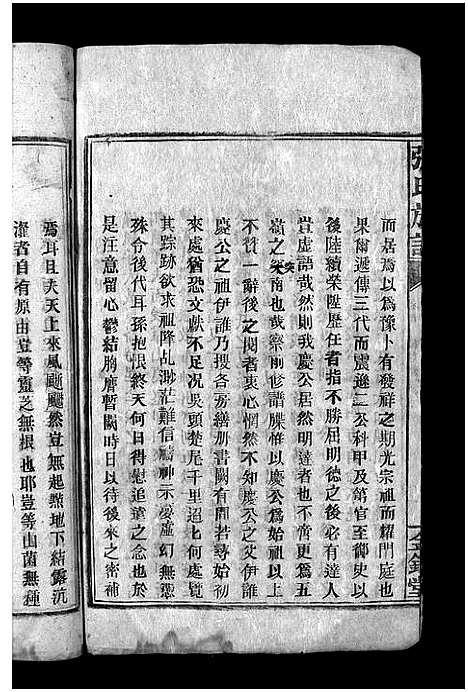 張氏族譜
而居焉以爲豫卜有發祥之期光宗祖而耀門庭也
果爾遞傳三代而震遜二公科甲及第官至御史以
後陸續榮陞歷任者指不勝屈明德之後必有達人
豈虛語哉然則我慶公居然明達者也不啻更爲五
嶺之南也哉矣則修譜牒惟以慶公爲始祖以上
不贊一辭後之閱者衷心惘然不知慶公之父伊誰
慶公之祖伊誰乃搜各房繕册書闕有間若尋始初
來處猶恐文獻不足况吳頭楚尾千里迢七何處覽
其踪跡欲求祖降乩渺茫難信禱神示夢虛幻無憑
殊令後代耳孫抱恨終天何日得慰追遠之念也於
是注意留心鬱結胸膺暫闕時日以待後來之密補
焉耳且夫天上來風颸颸然豈無起㷼地下結露沆
瀣者自有原由豈等靈芝無根也耶豈等山菌無種